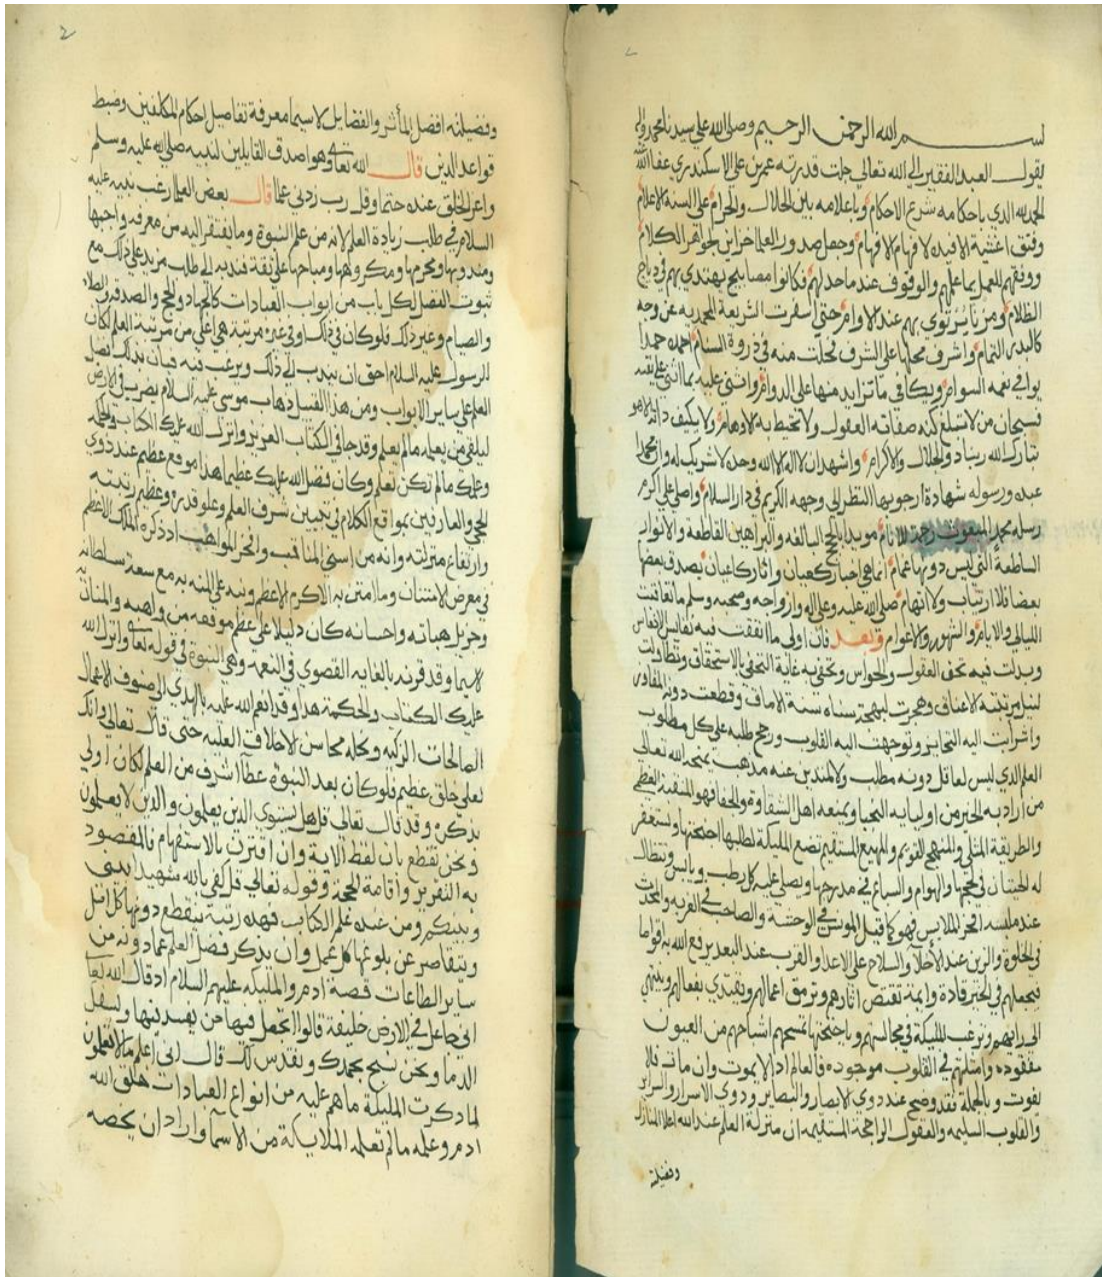 بسم الله الرحمن الرحيم وصلى الله على سيدنا محمد واله
يقول العبد الفقير الى الله تعالى جلت قدرته عمر بن على الاسكندرى عفا الله
الحمد لله الذى باحكامه شرع الاحكام وباعلامه بين الحلال والحرام على السنة الاعلام
وفتق اغشية الافيده لافهام الافهام وجعل صدور العلما خزاين لجواهر الكلام
ووفقهم للعمل بما علمهم والوقوف عند ما حد لهم فكانوا مصابيح يهتدى بهم فى دياج
الظلام ومزنا يرتوى بهم عند الاوام حتى اسفرت الشريعة المحمديه عن وجه
كالبدر التمام واشرف محلها على الشرف فحلت منه فى ذروة السنام احمده حمدا
يوافى نعمه السوام ويكافى ما تزايد منها على الدوام واثنى عليه بما اثنى على نفسه
فسبحان من لا تبلغ كنه صفاته العقول ولا تحيط به الاوهام ولا يكيف ذاته الا هو
تبارك الله ربنا ذو الجلال والاكرام واشهد ان لا اله الا الله وحده لا شريك له وان محمدا
عبده ورسوله شهادة ارجو بها النظر الى وجهه الكريم فى دار السلام واصلى على اكرم
رسله محمد المبعوث رحمة للانام مويدا بالحجج السالفه والبراهين القاطعة والانوار
الساطعة التى ليس دونها غمام انما هى اخبار كعيان واثار كاعيان يصدق بعضها
بعضا بلا ارتياب ولا اتهام صلى الله عليه وعلى اله وازواجه وصحبه وسلم ما تعاقبت
الليالى والايام والشهور والاعوام وبعد فان اولى ما انفقت فيه نفايس الانفاس
وبذلت فيه تحف العقول والحواس وتحفى به غاية التحفى بالاستحقاق وتطاولت
لنيل مرتبته الاعناق وهجرت لبهجة سناه سنة الاماق وقطعت دونه المفاوز
وتوجهت اليه القلوب ورجح طلبه على كل مطلوب
العلم الذى ليس لعاقل دونه مطلب ولا لمتدين عنه مذهب يمنحه الله تعالى
من اراد به الخير من اوليايه النجبا ويمنعه اهل الشقاوة والجفا فهو المنقبة العظمى
والطريقة المثلى والمنهج القويم والمهيع المستقيم تضع المليكة لطلبها اجنحتها ويستغفر
له الحيتان فى لججها والهوام والسباع فى مدرجها ويصلى عليه كل رطب ويابس وتتظال
عند ملبسه افخر الملابس فهو كما قيل المونس فى الوحشة والصاحب فى الغربه والمحدث
فى الخلوة والزين عند الاخلا والسلاح على الاعدا والقرب عند البعد يرفع الله به اقواما
فيجعلهم فى الخير قادة وايمة تقتص اثارهم وترمق اعمالهم ويقتدى بفعالهم وينتهى
الى رايهم وترغب المليكة فى مجالسهم وباجنحتها تمسحهم اشباحهم من العيون
مفقوده وامثلتهم فى القلوب موجوده فالعالم اذا لا يموت وان مات فلا
يفوت وبالجملة فقد وضح عند ذوى الابصار والبصاير وذوى الاسرار والسراير
والقلوب السليمه والعقول الراجحة المستقيمه ان منزلة العلم عند الله اعلا المنازل
وفضيلته
وفضيلته افضل المأثر والفضايل لا سيما معرفة تفاصيل احكام المكلفين وضبط
قواعد الدين قال الله تعالى وهو اصدق القايلين لنبيه صلى الله عليه وسلم
واعز الخلق عنده حتما وقل رب زدنى علما قال بعض العلما رغب نبيه عليه
السلام فى طلب زيادة العلم لانه من علم النبوة وما يفتقر اليه من معرفه واجبها
ومندوبها ومحرمها ومكروهها ومباحها على ثقة فندبه الى طلب مزيد على ذلك مع
ثبوت الفضل لكل باب من ابواب العبادات كالجهاد والحج والصدقه والصلاه
والصيام وغير ذلك فلو كان فى ذلك او فى غيره مرتبة هى اعلى من مرتبة العلم لكان
الرسول عليه السلام احق ان يندب الى ذلك ويرغب فيه فبان بذلك فضل
العلم على ساير الابواب ومن هذا القبيل ذهاب موسى عليه السلام يضرب فى الارض
ليلقى من يعلمه ما لم يعلم وقد جا فى الكتاب العزيز وانزل الله عليك الكتاب والحكمه
وعلمك ما لم تكن تعلم وكان فضل الله عليك عظيما هذا موقع عظيم عند ذوى
الحجى والعارفين بمواقع الكلام فى تبيين شرف العلم وعلو قدره وعظيم رتبته
وارتفاع منزلته وانه من اسنى المناقب وافخر المواهب اذ ذكره الملك الاعظم
فى معرض الامتنان وما امتن به الاكرم الاعظم ونبه على المنه به مع سعة سلطانه
وجزيل هباته واحسانه كان دليلا على عظم موقعه من واهبه والمنان
لا سيما وقد قرنه بالغايه القصوى فى النعمه وهى النبوة فى قوله تعالى وانزل الله
عليك الكتاب والحكمة هذا وقد انعم الله عليه بالهدى الى صنوف الاعمال
الصالحات الزكيه وكمله محاسن الاخلاق العليه حتى قال تعالى وانك
لعلى خلق عظيم فلو كان بعد النبوة عطا اشرف من العلم لكان اولى
بذكره وقد قال تعالى قل هل يستوى الذين يعلمون والذين لا يعلمون
ونحن نقطع بان لفظ الاية وان اقترن بالاستفهام فالمقصود
به التقرير واقامة الحجة وقوله تعالى قل كفى بالله شهيدا بينى
وبينكم ومن عنده علم الكتاب فهذه رتبة ينقطع دونها كل امل
ويتقاصر عن بلوغها كل عمل وان يذكر فضل العلم عما دونه من
ساير الطاعات قصة ادم والمليكه عليهم السلام اذ قال الله تعالى
انى جاعل فى الارض خليفة قالوا اتجعل فيها من يفسد فيها ويسفك
الدما ونحن نسبح بحمدك ونقدس لك قال انى اعلم ما لا تعلمون
لما ذكرت المليكة ما هم عليه من انواع العبادات خلق الله
ادم وعلمه ما لم تعلمه الملايكة من الاسما واراد ان يخصه